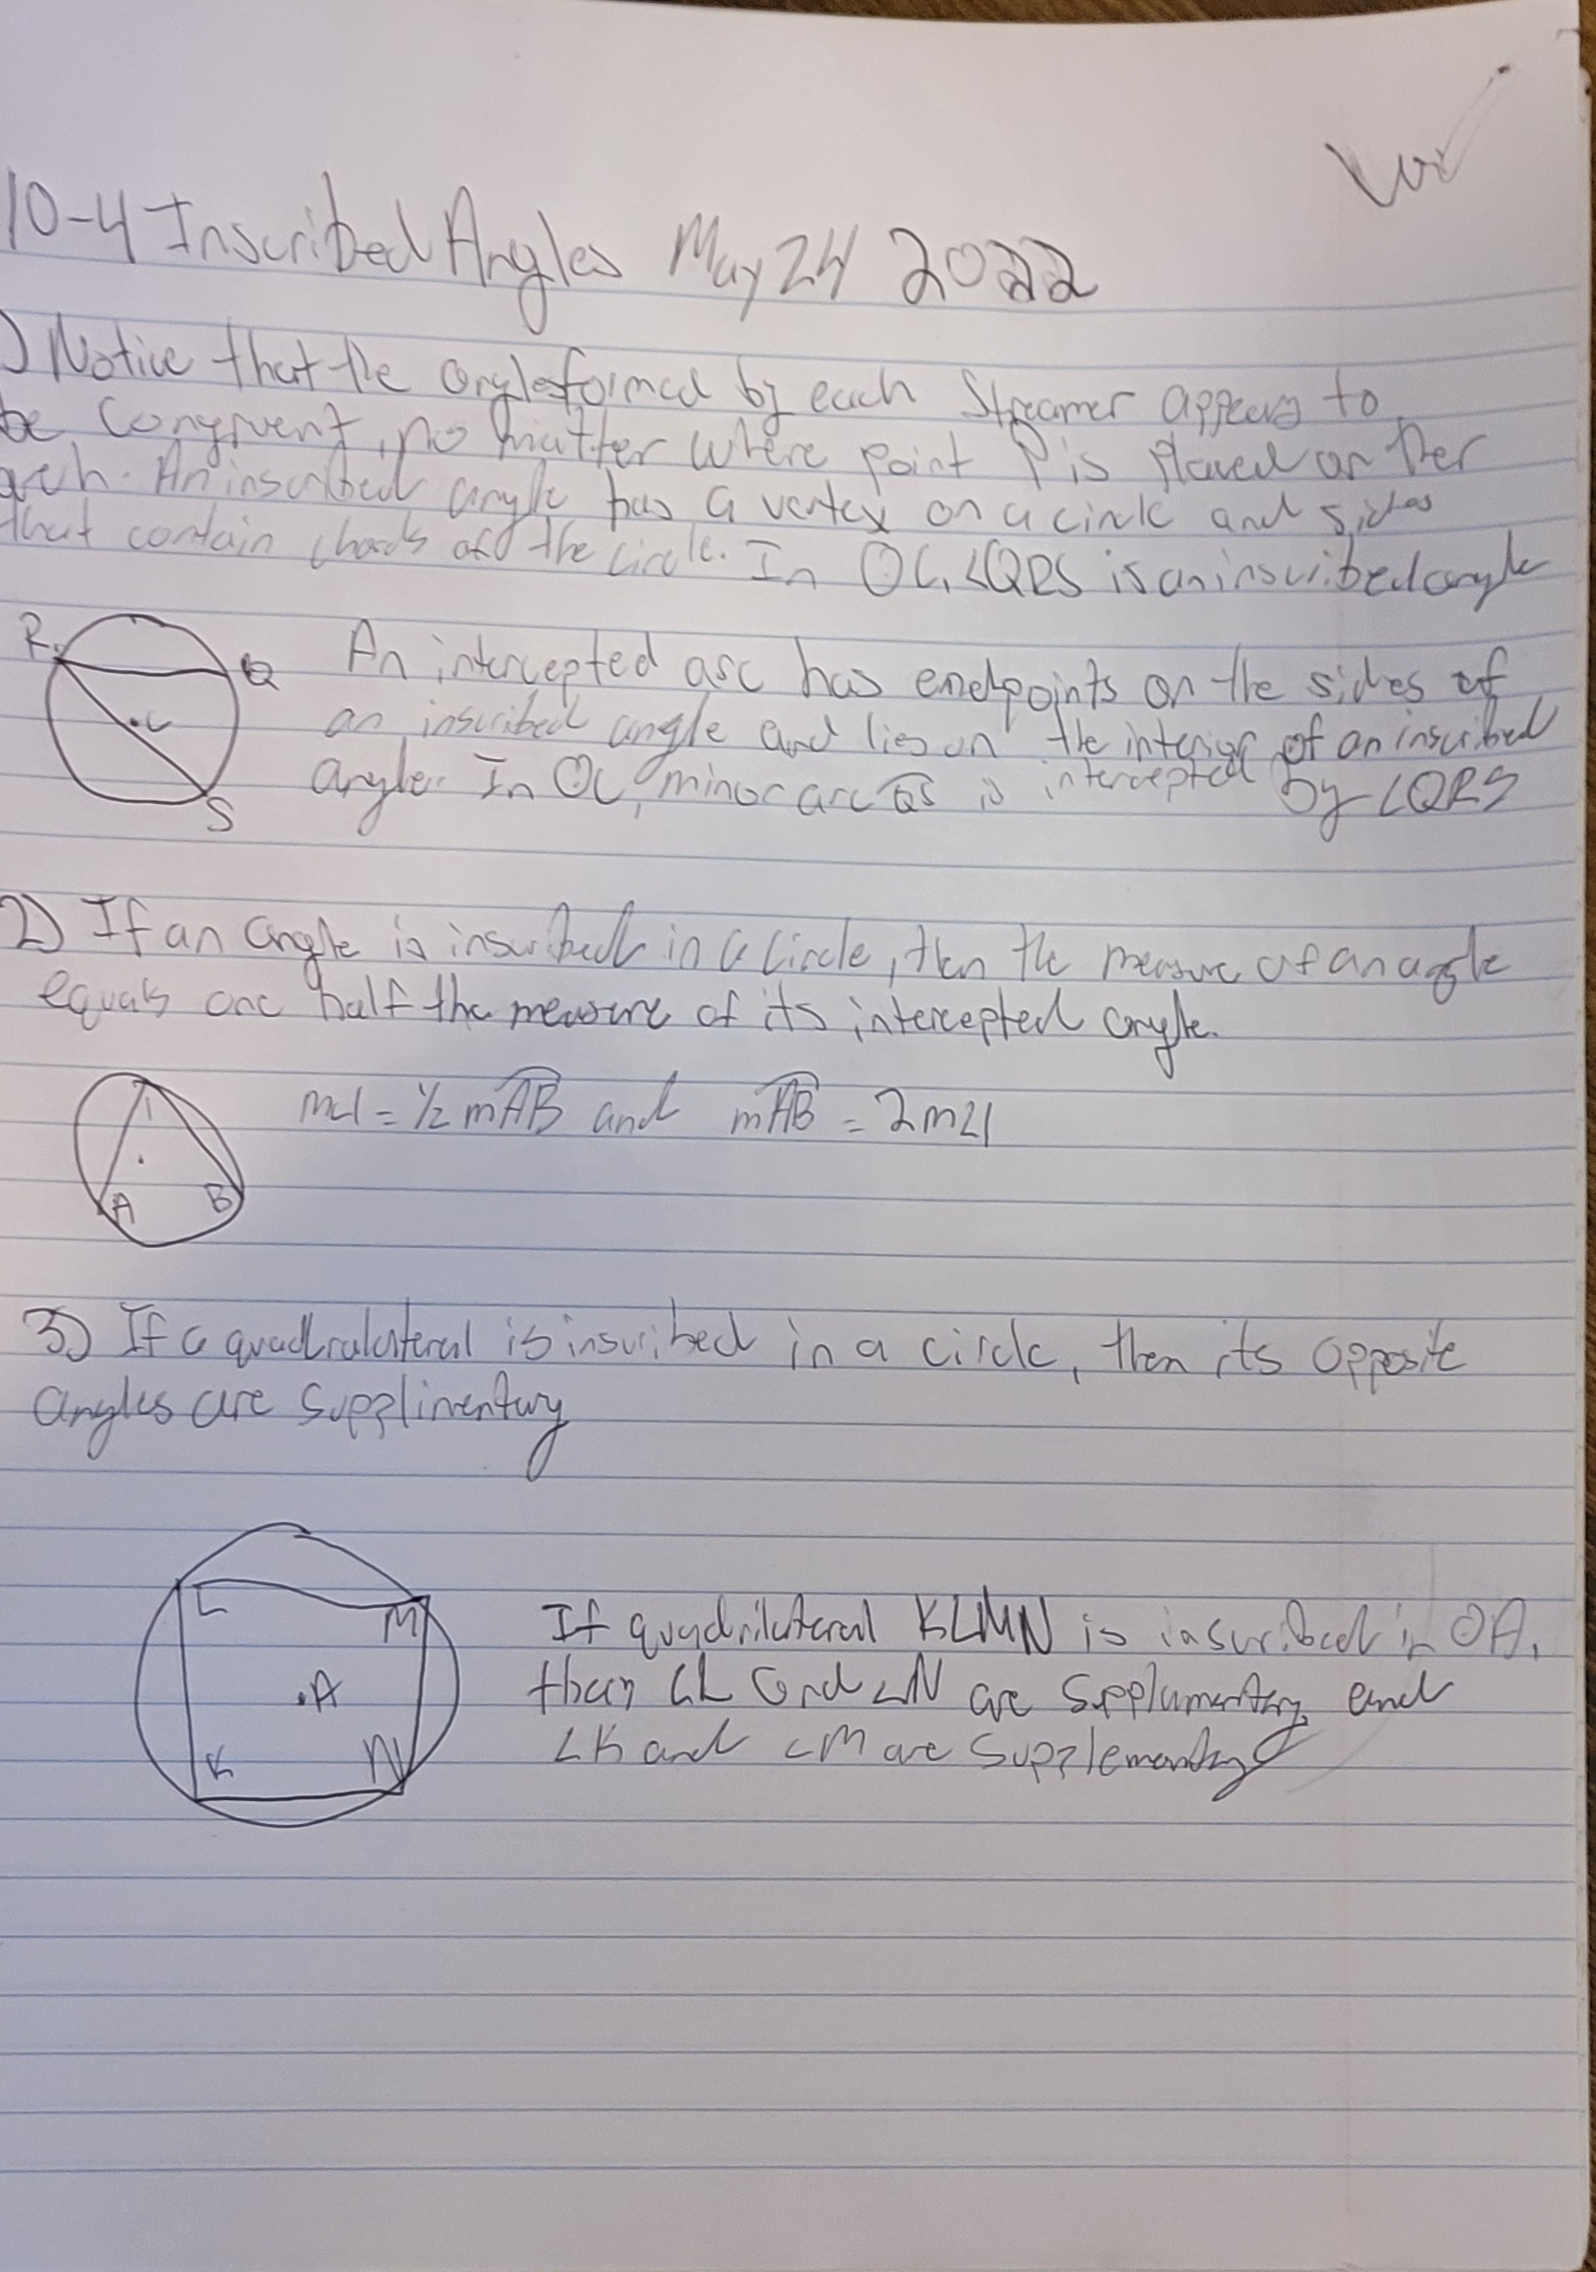 10-4 Inscribed Angles May 24 2022
1) Notice that the angle formed by each streamer appears to
be congruent, no matter where point P is placed on ther
arch. An inscribed angle has a vertex on a circle and sides
that contain chords of the circle. In ⊙C, ∠QRS is an inscribed angle
R
Q
C
S
An intercepted arc has endpoints on the sides of
an inscribed angle and lies on the interior of an inscribed
angle. In ⊙C, minor arc QS is intercepted by ∠QRS
2) If an angle is inscribed in a circle, then the measure of an agle
equals one half the measure of its intercepted angle.
1
A B
m∠1 = 1/2 mAB and mAB = 2m∠1
3) If a quadralateral is inscribed in a circle, then its opposite
angles are supplimentary
L
M
A
K N
If quadrilateral KLMN is inscribed in ⊙A,
then ∠L and ∠N are supplumentary and
∠K and ∠M are supplementary